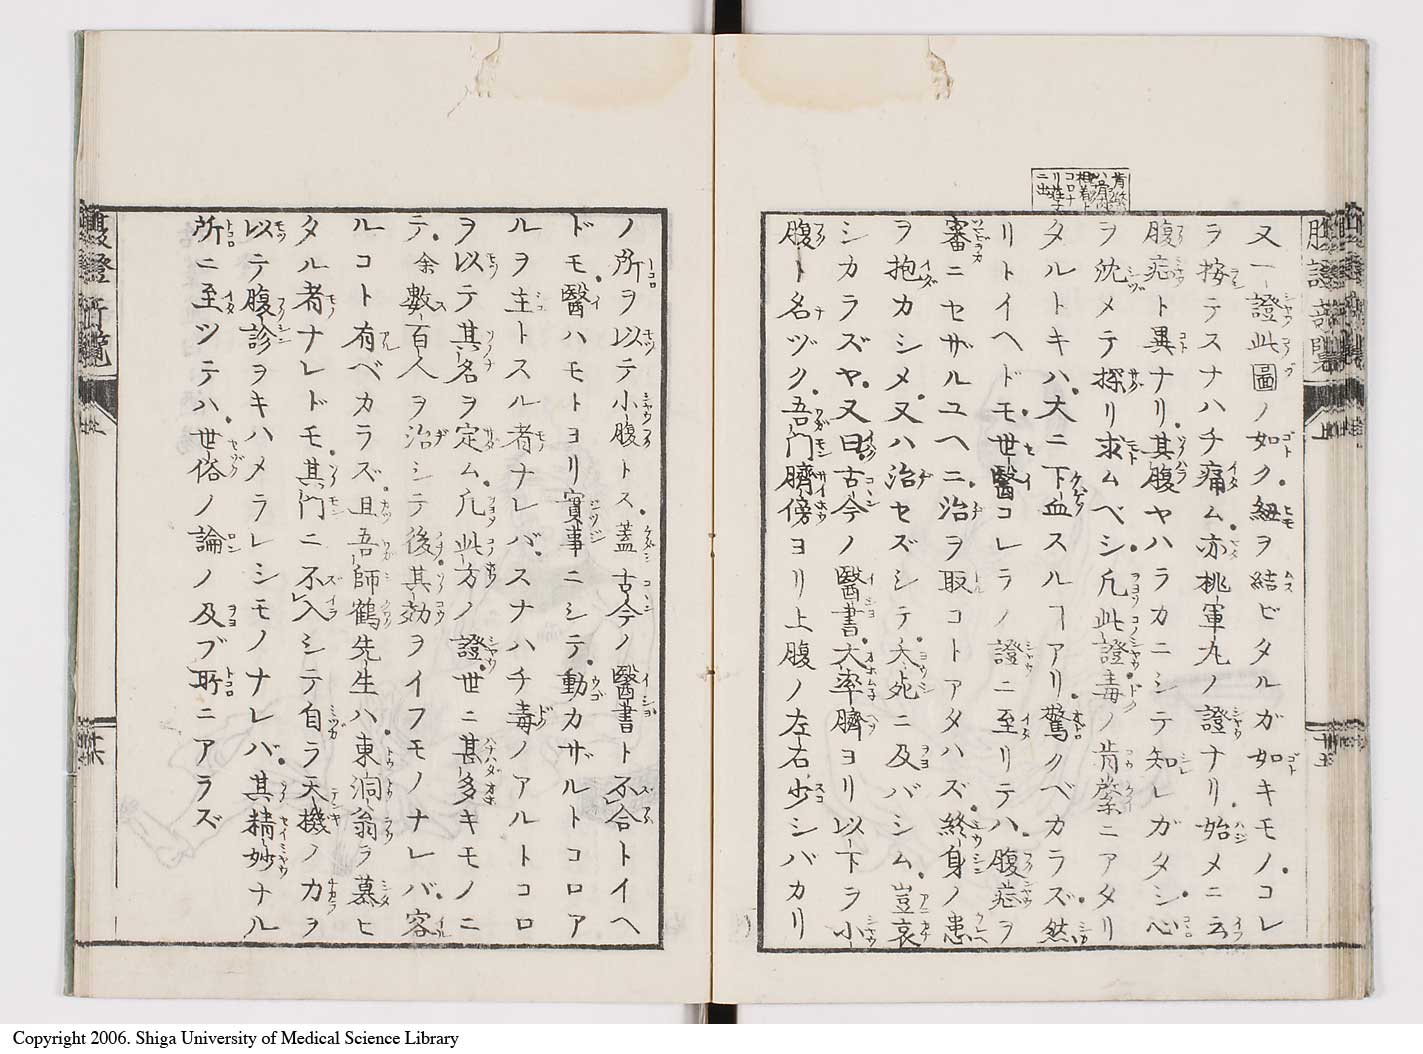 又一證此圖ノ如ク紐ヲ結ビタルガ如キモノコレ
ヲ按テスナハチ痛ム亦桃軍丸ノ證ナリ始メニ云
腹症ト異ナリ其腹ヤハラカニシテ知レガタシ心
ヲ沈メテ探リ求ムベシ凡此證毒ノ肯綮ニアタリ
タルトキハ大ニ下血スルヿアリ驚クベカラズ然
リトイヘドモ世醫コレラノ證ニ至リテハ腹症ヲ
審ニセザルユヘニ治ヲ取コトアタハズ終身ノ患
ヲ抱カシメ又ハ治セズシテ夭死ニ及バシム豈哀
シカラズヤ又曰古今ノ醫書大率臍ヨリ以下ヲ小
腹ト名ヅク吾門臍傍ヨリ上腹ノ左右少シバカリ
ノ所ヲ以テ小腹トス蓋古今ノ醫書ト不合トイヘ
ドモ醫ハモトヨリ實事ニシテ動カザルトコロア
ルヲ主トスル者ナレバスナハチ毒ノアルトコロ
ヲ以テ其名ヲ定ム凡此方ノ證世ニ甚多キモノニ
テ余數百人ヲ治シテ後其効ヲイフモノナレバ容
ルコト有ベカラズ且吾師鶴先生ハ東洞翁ヲ慕ヒ
タル者ナレドモ其門ニ不入シテ自ラ天機ノカヲ
以テ腹診ヲキハメラレシモノナレバ其精妙ナル
所ニ至ツテハ世俗ノ論ノ及ブ所ニアラズ
Copyright 2006. Shiga University of Medical Science Library